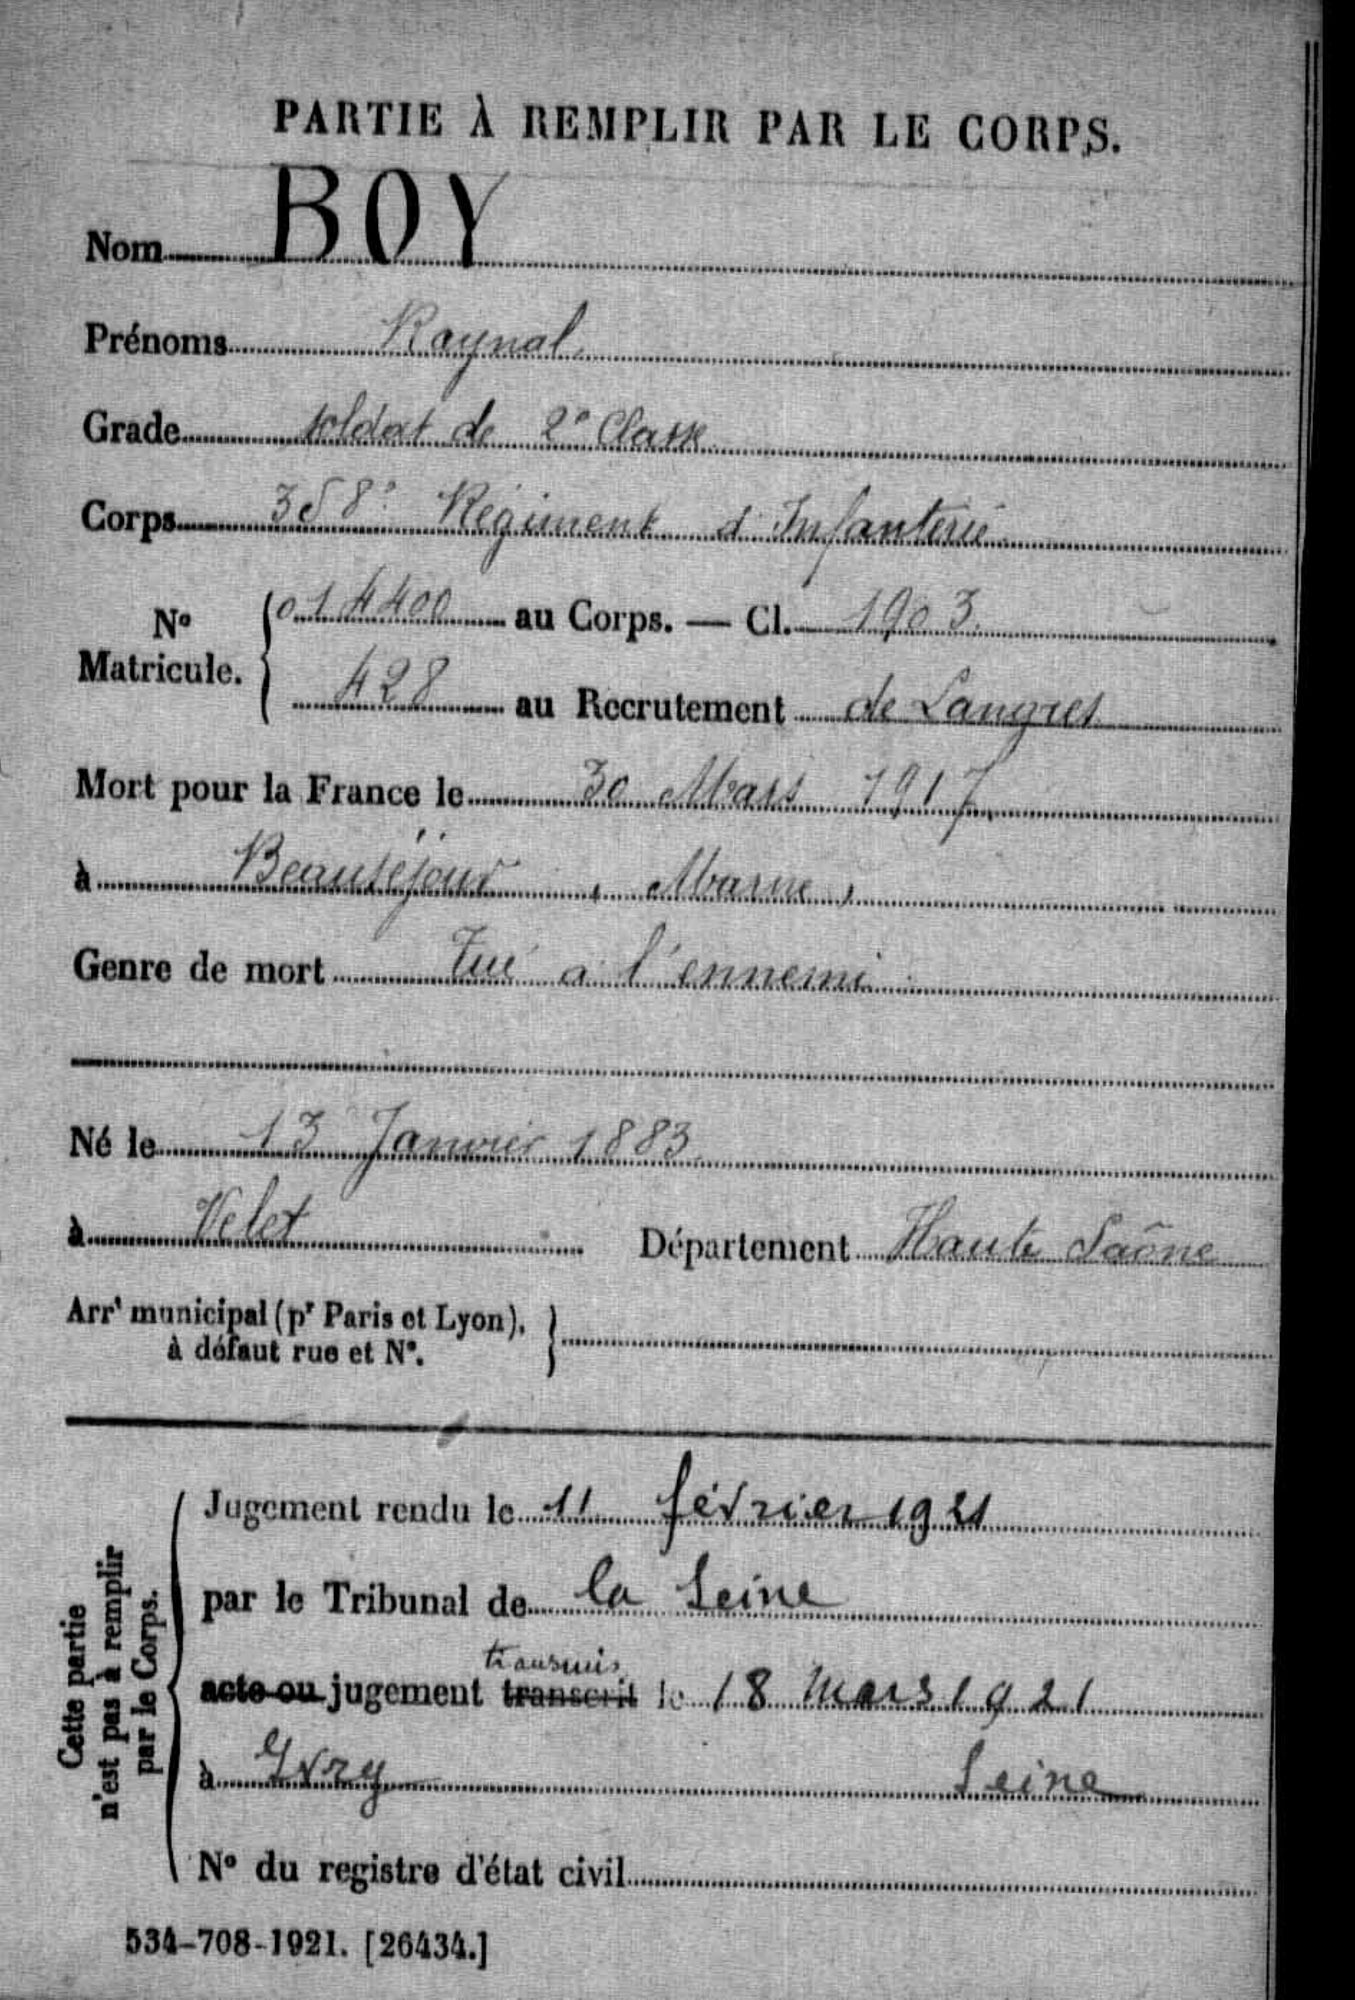 PARTIE À REMPLIR PAR LE CORPS.
Nom BOY
Prénoms Raynal
Grade soldat de 2e Classe
Corps 358e Régiment d'Infanterie
No Matricule. { 014400 au Corps. — Cl. 1903.
428 au Recrutement de Langres
Mort pour la France le 30 Mars 1917
à Beauséjour, Marne,
Genre de mort Tué a l'ennemi
Né le 13 Janvier 1883.
à Velet Département Haute Saône
Arrt municipal (pr Paris et Lyon),
à défaut rue et No. }
Cette partie
n'est pas à remplir
par le Corps.
Jugement rendu le 11 février 1921
par le Tribunal de la Seine
transmis
acte ou jugement transcrit le 18 mars 1921
à Ivry Seine
No du registre d'état civil
534-708-1921. [26434.]